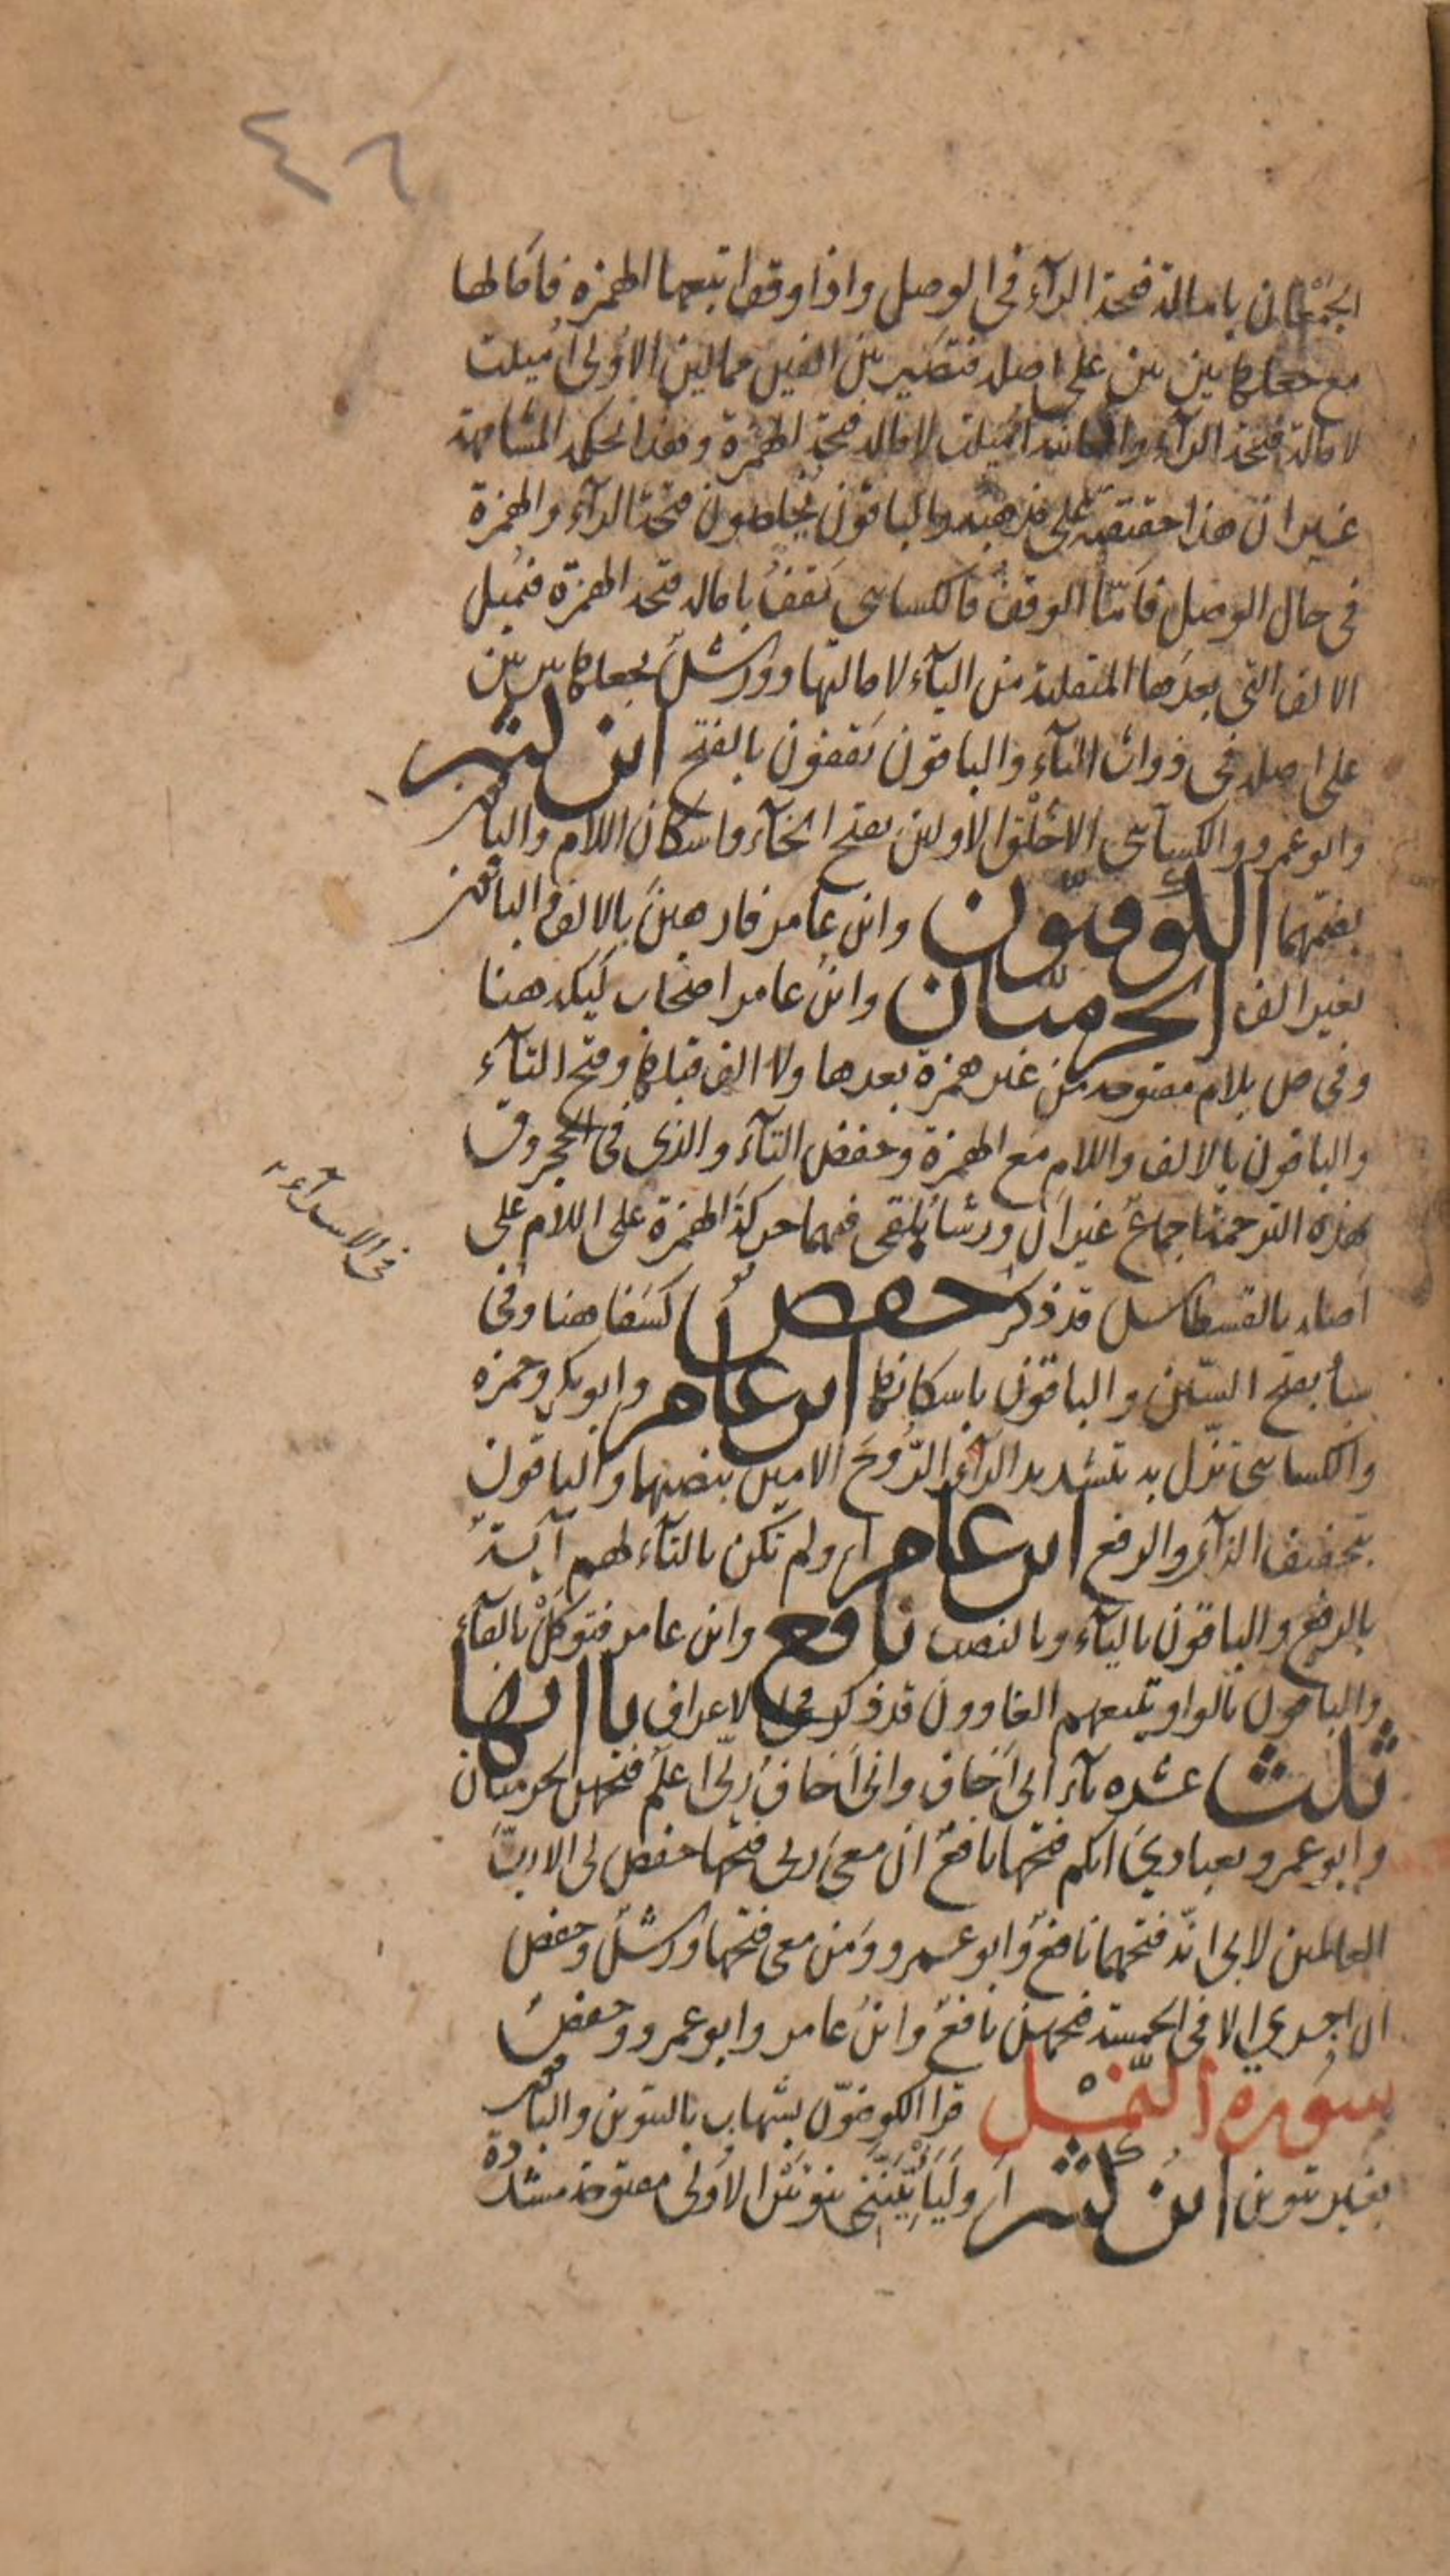 ٤٦
الجمعان بامالة فتحة الرآء فى الوصل واذا وقف اتبعها الهمزة فامالها
مع جعلها بين بين على اصله فتصير بين الفين ممالين الاولى اميلت
لامالة فتحة الرآء والثانية اميلت لامالة فتحة الهمزة وهذا تحكمه المشافهة
غير ان هذا حقيقته على مذهبه والباقون يخلصون فتحة الرآء والهمزة
فى حال الوصل فامّا الوقف فالكسائى يقف بامالة فتحة الهمزة فيميل
الالف التى بعدها المنقلبة من اليآء لامالتها وورش يجعلها بين بين
على اصله فى ذوات اليآء والباقون يقفون بالفتح ابن كثير
وابو عمرو والكسائى الا خلق الاولين بفتح الخآء واسكان اللام والباقون
بضمهما الكوفيّون وابن عامر فارهين بالالف والباقون
بغير الف الحرميّان وابن عامر اصحاب ليكة هنا
وفى ص بلام مفتوحة من غير همزة بعدها ولا الف قبلها وفتح التآء
والباقون بالالف واللام مع الهمزة وخفض التآء والذى فى الحجر وق
بهذه الترجمة اجماع غير ان ورشا يلقى فيهما حركة الهمزة على اللام على
اصله بالقسطاس قد ذكر حفص كسفا هنا وفى
فى الاسرآء
سبأ بفتح السّين والباقون باسكانها ابن عامر وابو بكر وحمزة
والكسائى نزّل به بتشديد الزآء الرّوح الامين بنصبهما والباقون
بتخفيف الزآء والرفع ابن عامر او لم تكن بالتآء لهم آية
بالرفع والباقون باليآء وبالنصب نافع وابن عامر فتوكل بالفآء
والباقون بالواو يتبعهم الغاوون قد ذكر فى الاعراف ياآتها
ثلث عشره يآء انى اخاف وانى اخاف ربّى اعلم فتحهن الحرميان
وابو عمرو بعبادى انكم فتحها نافع ان معى ربى فتحها حفص لى الا ربّ
العالمين لابى انّه فتحهما نافع وابو عمرو ومن معى فتحها ورش وحفص
ان اجرى الا فى الخمسة فتحهن نافع وابن عامر وابو عمرو وحفص
سورة النّمل قرا الكوفيّون بشهاب بالتنوين والباقون
بغير تنوين ابن كثير او ليأتيننى بنونين الاولى مفتوحة مشددة